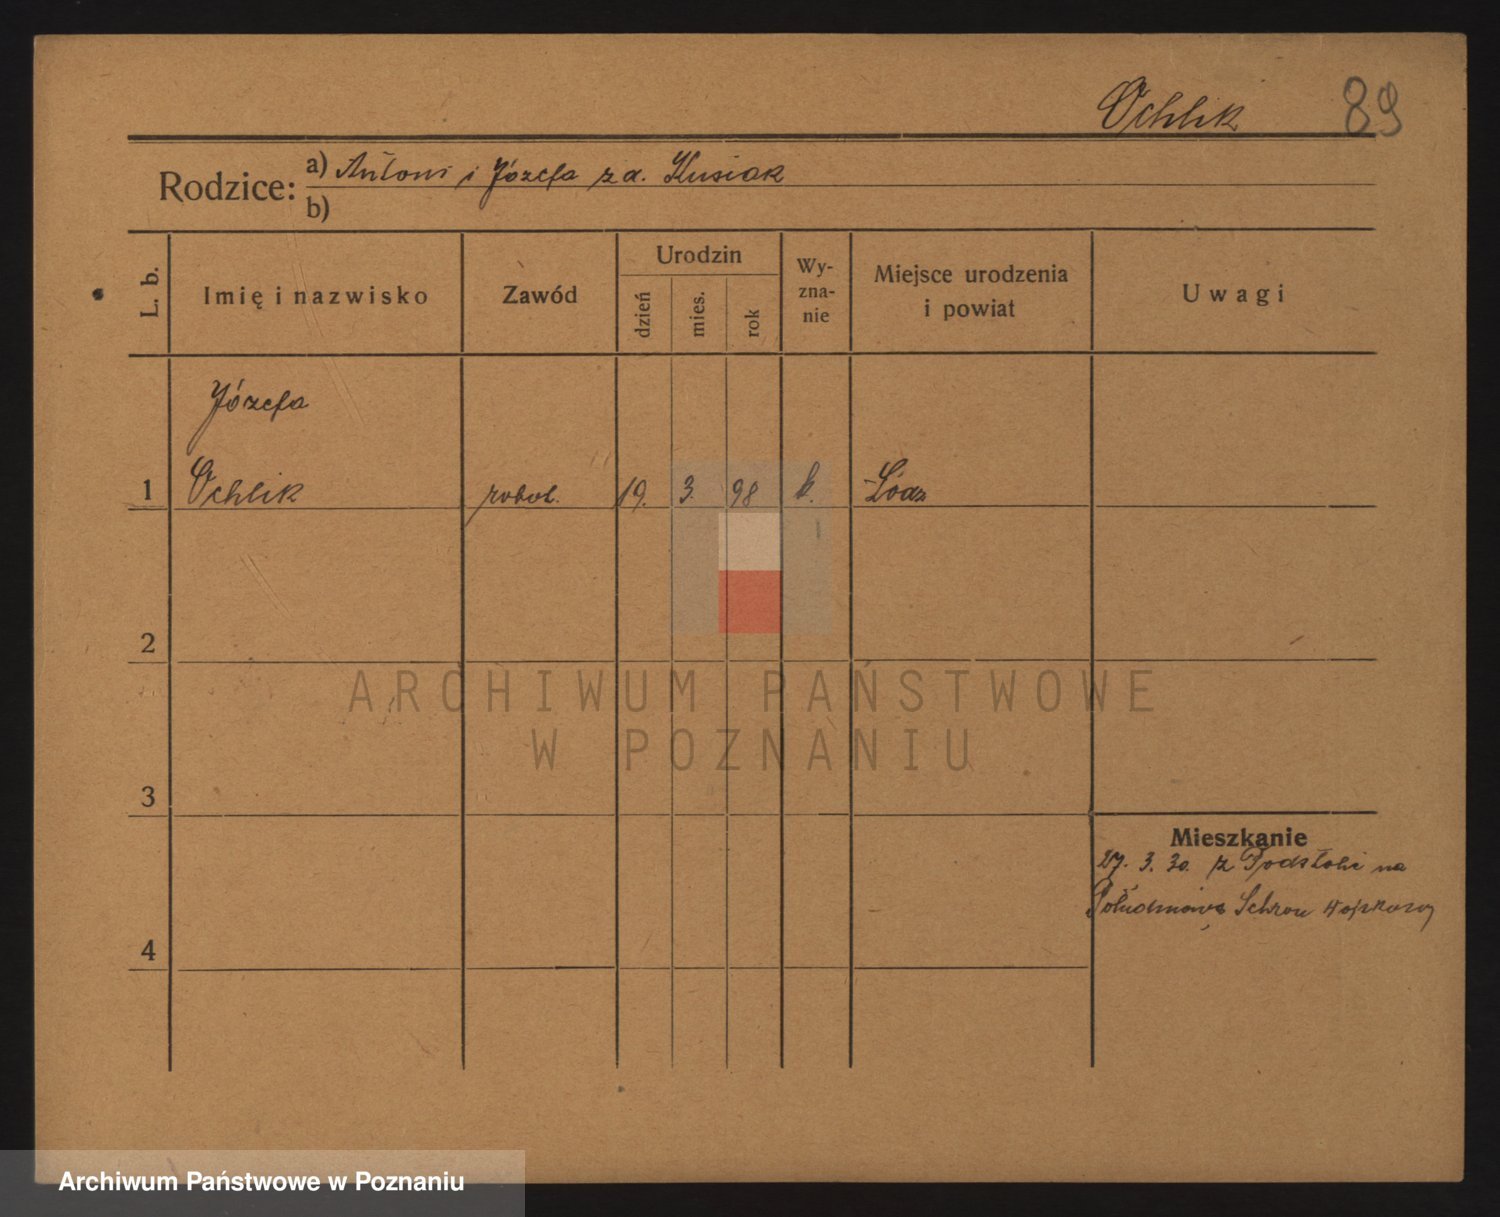 Ochlik 89
Rodzice: a) Antoni i Józefa z d. Kusiak
b)
L. b. Imię i nazwisko Zawód Urodzin dzień mies. rok Wyznanie Miejsce urodzenia i powiat Uwagi
Józefa
1 Ochlik robot. 19. 3. 98 k. Łódz
2
ARCHIWUM PAŃSTWOWE
W POZNANIU
3
Mieszkanie
27. 3. 30. z Podstolic na
Południowa Schron
4
Archiwum Państwowe w Poznaniu